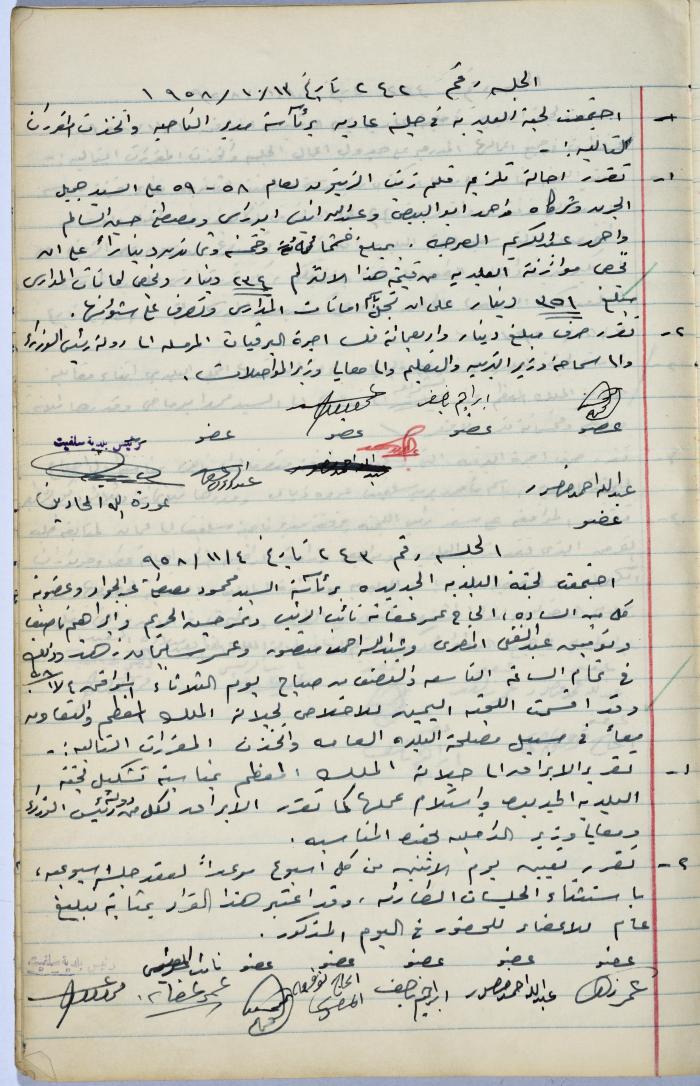 الجلسه رقم ٢٤٢ تاريخ ١٣/١٠/١٩٥٨
اجتمعت لجنة البلديه في جلسه عاديه برئاسة مدير الناحيه واتخذت المقررات
التاليه :-
١- تقرر احالة تلزيم قلم زيت الزيتون لعام ٥٨ - ٥٩ على السيد جميل
وشركاه واحمد ومصطفى حسين السالم
واحمد عبدالكريم بمبلغ وخمسة وثمانون ديناراً على ان
تخص موازنة البلديه من قيمة هذا الالتزام ٢٣٤ دينار وتخص امانات المدارس
بمبلغ ٣٥١ دينار على ان امانات المدارس وتصرف على شؤونها .
٢- تقرر صرف مبلغ دينار واربعمائة فلس اجرة البرقيات المرسله الى دولة رئيس الوزراء
والى سماحة وزير التربيه والتعليم والى معالي وزير المواصلات .
ابراهيم ناصيف
عضو عضو عضو عضو رئيس بلدية سلفيت
عبدالله احمد منصور
عضو
الجلسه رقم ٢٤٣ تاريخ ٤/١١/٩٥٨
اجتمعت لجنة البلديه الجديده برئاسة السيد محمود مصطفى عبدالجواد وعضوية
كل من الساده ، الحاج عمر عفانه نائب الرئيس وحسين الحريم وابراهيم ناصيف
وتوفيق عبدالغني المصري وعبدالله احمد منصور وعمر سليمان زهد وذلك
في تمام الساعة التاسعه والنصف من صباح يوم الثلاثاء الموافق ٤/١١/٥٨
وقد اقسمت اللجنه اليمين للاخلاص لجلالة الملك المعظم والتعاون
معاً في سبيل مصلحة البلده العامه واتخذت المقررات التاليه :-
١- تقرير الابراق الى جلالة الملك المعظم بمناسبة تشكيل لجنة
البلديه الجديده واستلام عملها كما تقرر الابراق لكل من دولة رئيس الوزراء
ومعالي وزير الداخليه بهذه المناسبه .
٢- تقرر تعيين يوم الاثنين من كل اسبوع موعداً لعقد جلسه اسبوعيه ،
باستثناء الجلسات الطارئه ، وقد اعتبر هذا القرار بمثابة تبليغ
عام للاعضاء للحضور في اليوم المذكور .
عضو عضو عضو عضو عضو نائب الرئيس رئيس بلدية سلفيت
عمر زهد عبدالله احمد منصور ابراهيم ناصيف الحاج توفيق المصري عمر عفانه